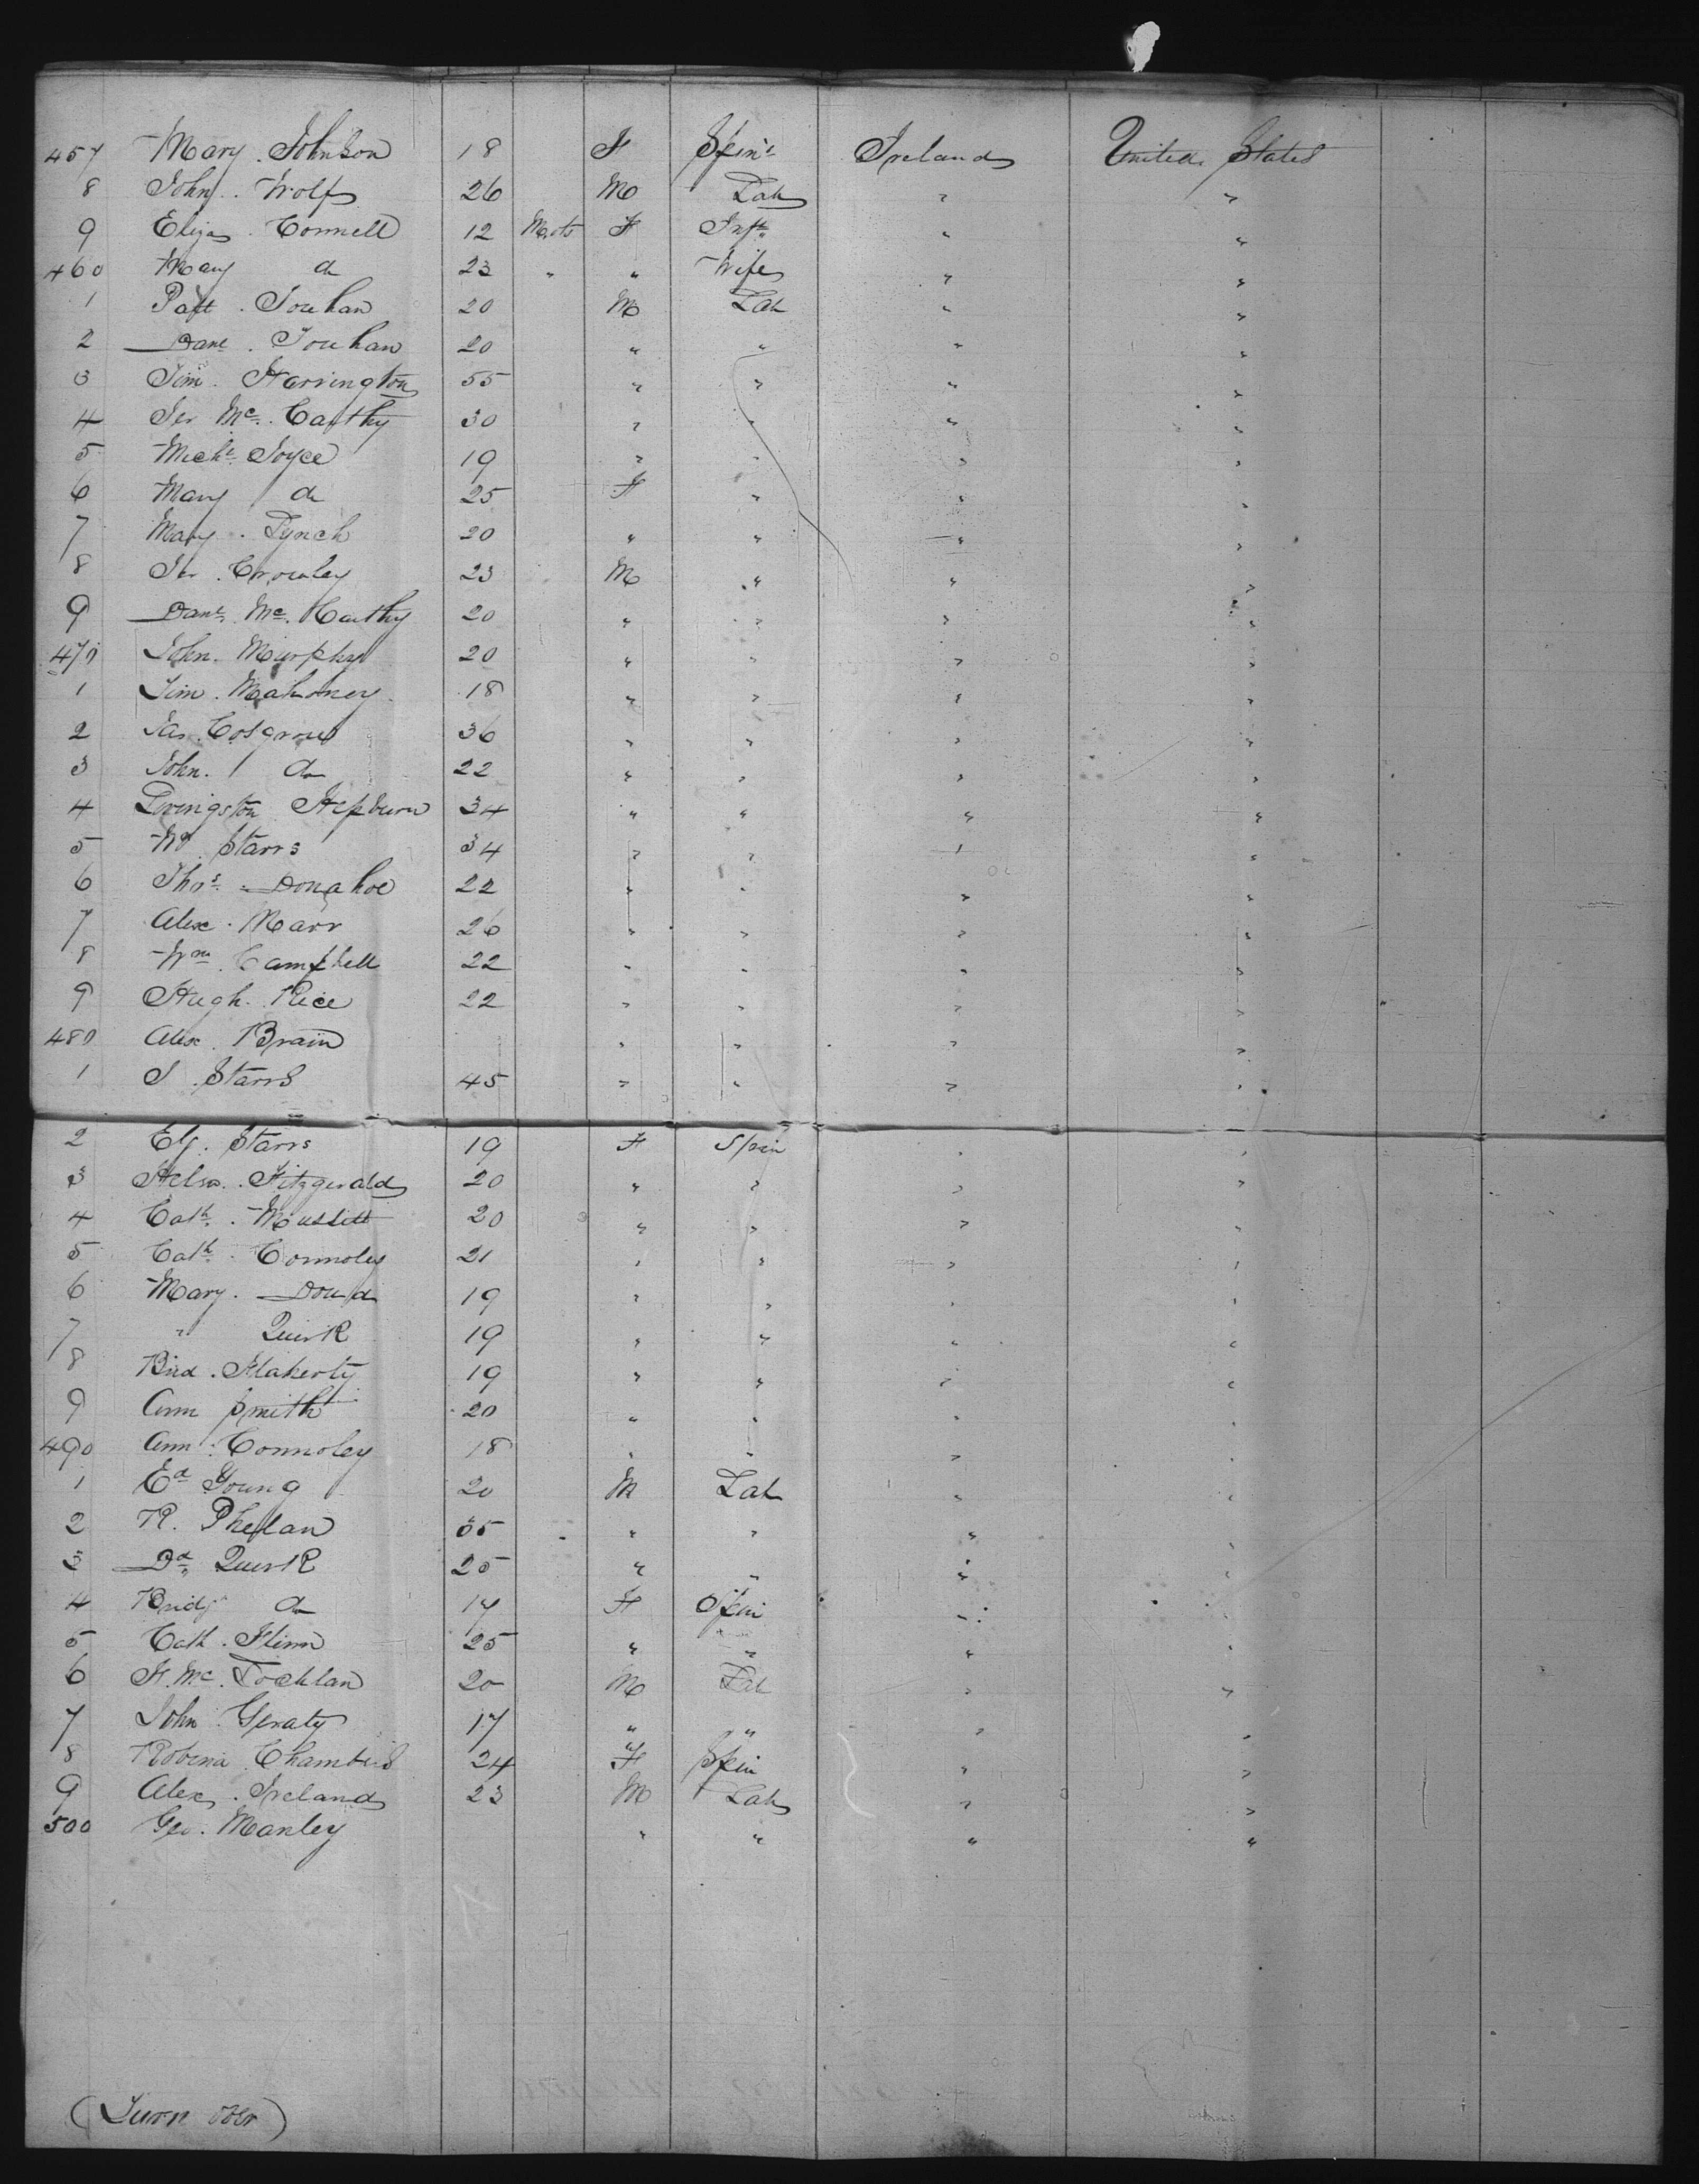 457 Mary Johnson 18 F Spinr Ireland United States
8 John Wolf 26 M Lab " "
9 Eliza Connell 12 Mots F Inft " "
460 Mary do 23 " " Wife " "
1 Patt Houhan 20 M Lab " "
2 Danl Houhan 20 " " " "
3 Tim Harrington 55 " " " "
4 Jer Mc Carthy 30 " " " "
5 Michl Joyce 19 " " " "
6 Mary do 25 F " " "
7 Mary Lynch 20 " " " "
8 Jer Crowley 23 M " " "
9 Danl Mc Carthy 20 " " " "
470 John Murphy 20 " " " "
1 Tim Mahoney 18 " " " "
2 Jas Cosgrove 36 " " " "
3 John do 22 " " " "
4 Livingston Hepburn 34 " " " "
5 W Starrs 34 " " " "
6 Thos Donahoe 22 " " " "
7 Alex Marr 26 " " " "
8 Wm Campbell 22 " " " "
9 Hugh Rice 22 " " " "
480 Alex Brain " " " "
1 J Starrs 45 " " " "
2 Elj Starrs 19 F Spin " "
3 Fitzgerald 20 " " " "
4 Cath 20 " " " "
5 Cath Connoley 21 " " " "
6 Mary Doud 19 " " " "
7 " Quirk 19 " " " "
8 Brid Flaherty 19 " " " "
9 Ann Smith 20 " " " "
490 Ann Connoley 18 " " " "
1 Ed Young 20 M Lab " "
2 R. Phelan 35 " " " "
3 Dd Quirk 25 " " " "
4 Bridj do 17 F Spin " "
5 Cath Flinn 25 " " " "
6 F. Mc Lochlan 20 M Lab " "
7 John Geraty 17 " " " "
8 Robina Chambers 24 F Spin " "
9 Alex Ireland 23 M Lab " "
500 Geo. Manley " " " "
(Turn over)